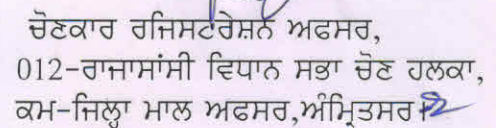 ਚੋਣਕਾਰ ਰਜਿਸਟਰੇਸ਼ਨ ਅਫਸਰ,
012-ਰਾਜਾਸਾਂਸੀ ਵਿਧਾਨ ਸਭਾ ਚੋਣ ਹਲਕਾ,
ਕਮ-ਜਿਲ੍ਹਾ ਮਾਲ ਅਫਸਰ,ਅੰਮ੍ਰਿਤਸਰ